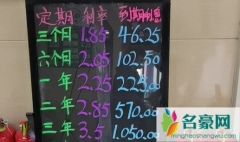 定期 利率 到期利息
三个月 1.85 46.25
六个月 2.05 102.50
一年 2.25 225.00
二年 2.85 570.00
三年 3.5 1.050.00
名豪网